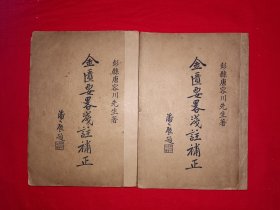 彭縣唐容川先生著
金匱要畧淺註補正
彭縣唐容川先生著
金匱要畧淺註補正